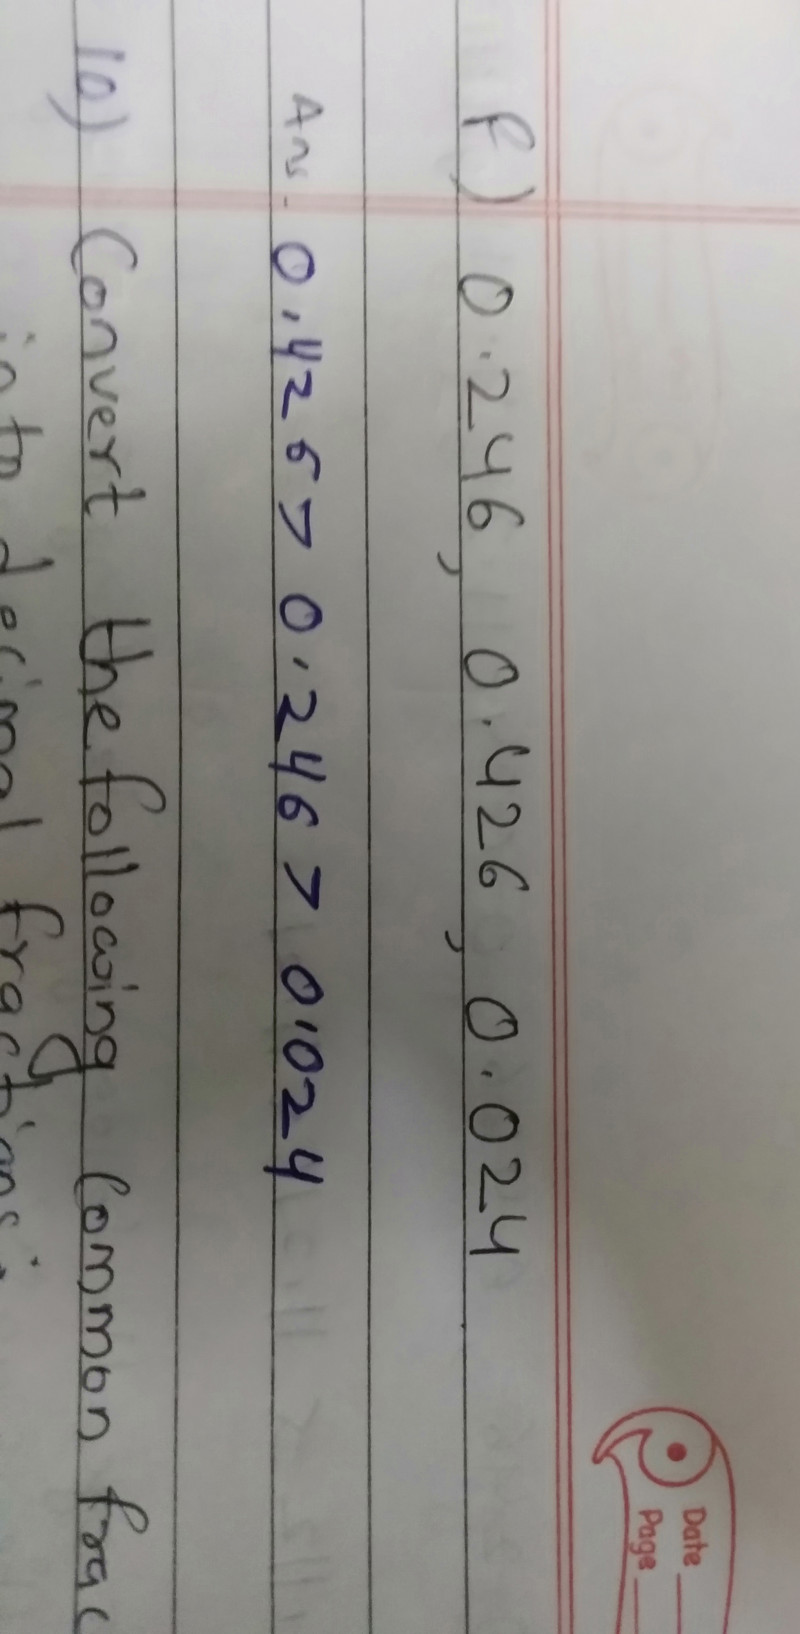 Date
Page
f) 0.246, 0.426, 0.024
Ans. 0.426 > 0.246 > 0.024
10) Convert the following Common frac
into decimal fractions: